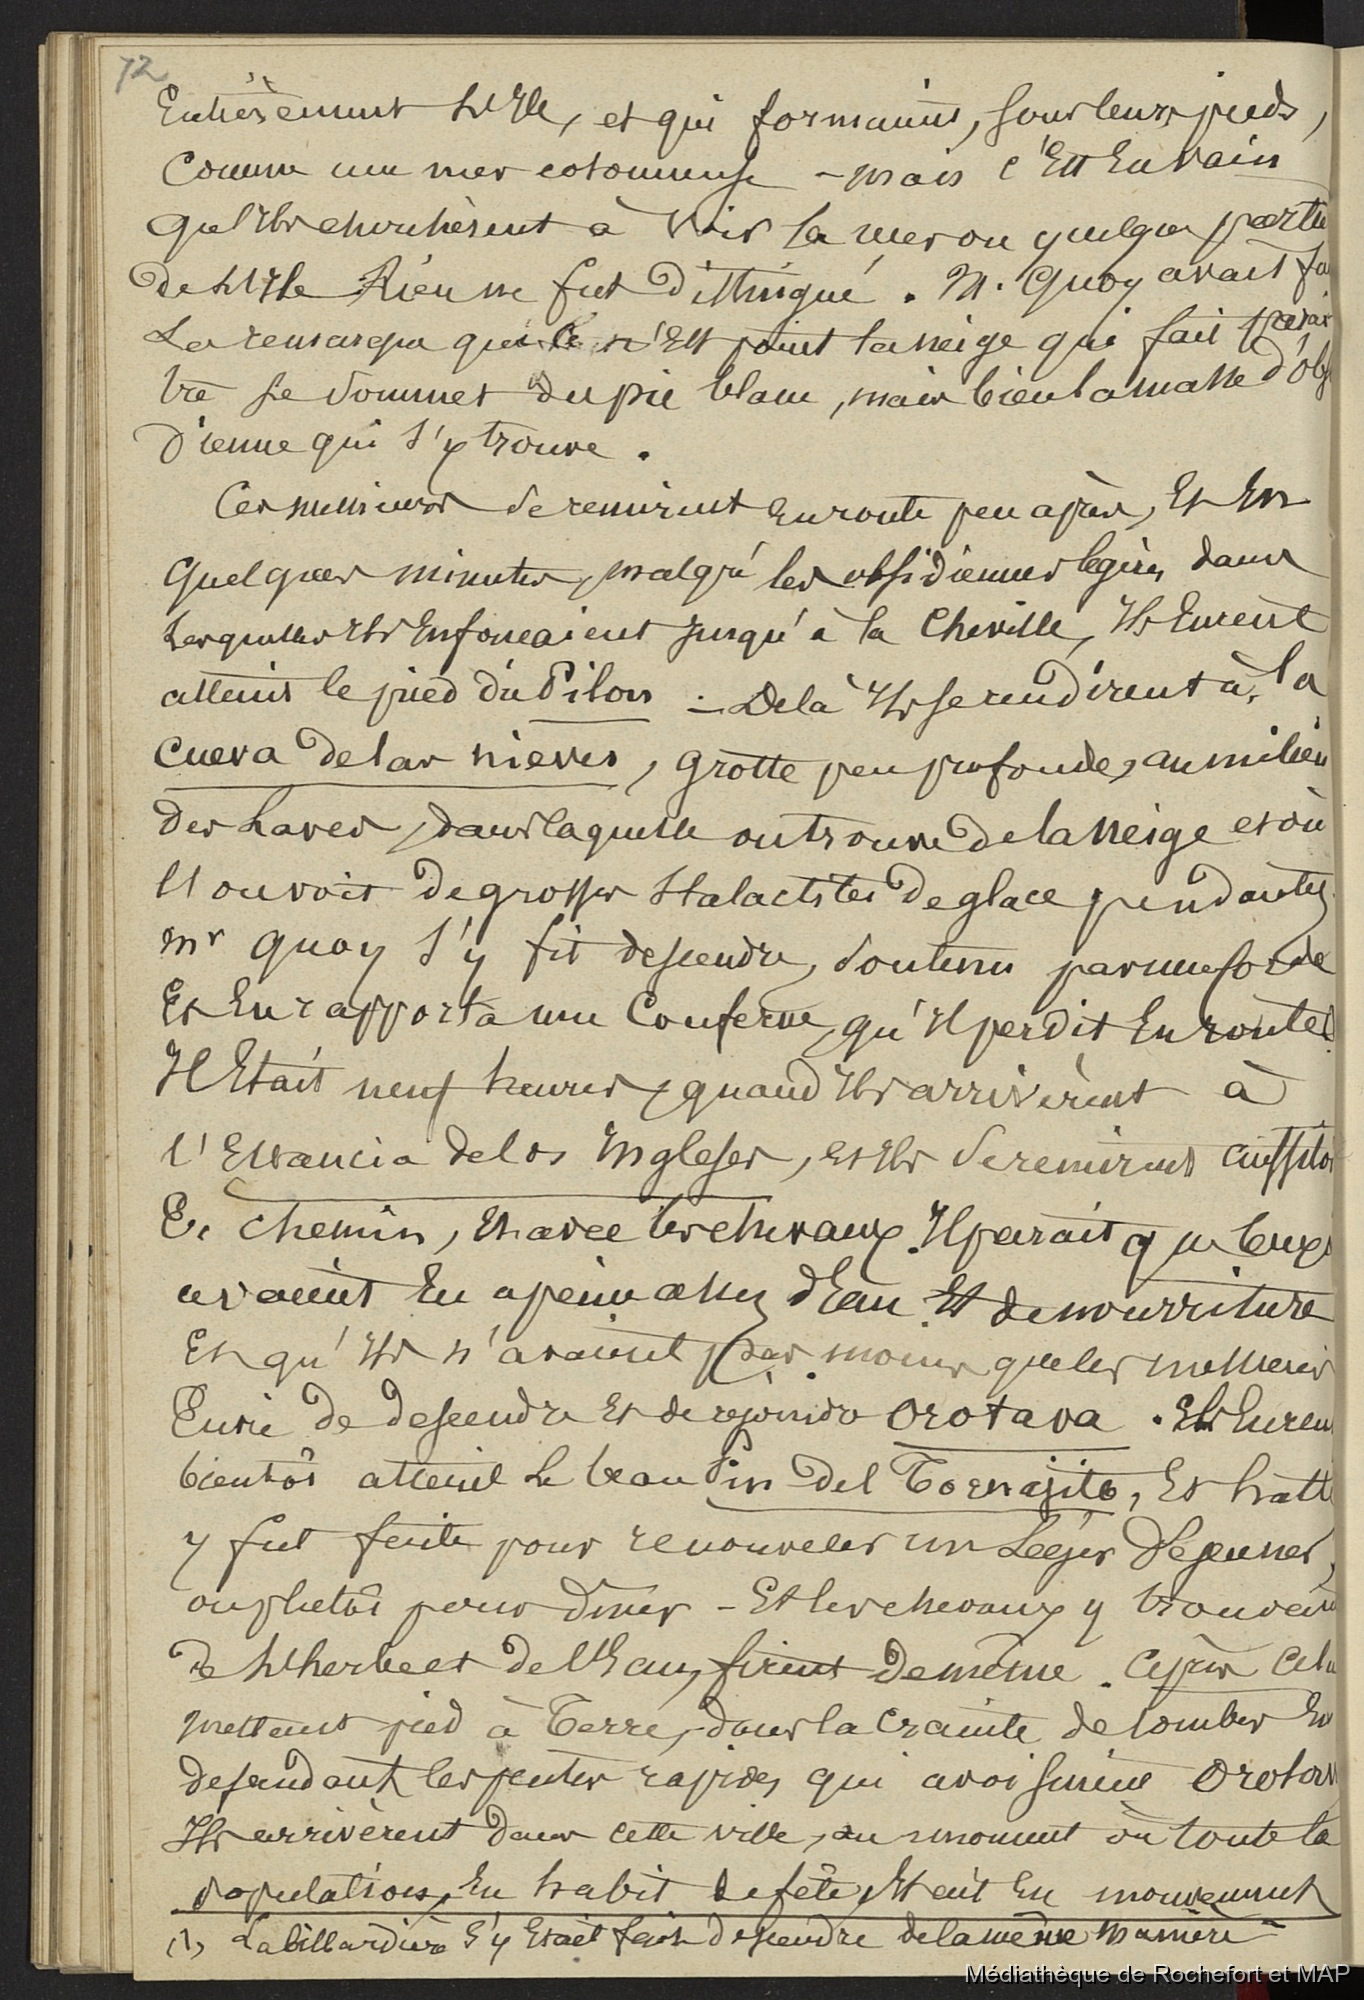 72
Entièrement l'Ile, et qui formaient, sous leurs pieds,
comme une mer cotonneuse - mais c'Est En vain
qu'Ils cherchèrent à voir la mer ou quelque partie
de l'Ile Rien ne fut distingué. M. Quoy avait fa
La remarque que ce n'Est point la neige qui fait parai
tre le sommet du pic blanc, mais bien la masse d'obsi
dienne qui s'y trouve.
Ces messieurs se remirent en route peu après, Et En
quelques minutes, malgré les obsidiennes légères dans
Lesquelles Ils Enfoncaient jusqu'à la cheville, Ils Eurent
atteint le pied du Piton - De là Ils se rendirent à la
Cueva de las nieves, grotte peu profonde, au milieu
des Laves, dans laquelle on trouve de la neige et où
l'on voit de grosses stalactites de glace pendantes.
Mr Quoy s'y fit descendre, soutenu par une corde
Et En rapporta une Conferve, qu'Il perdit En route.
Il Etait neuf heures, quand Ils arrivèrent à
l'Estancia de los Ingleses, et Ils se remirent aussitôt
En chemin, Et avec les chevaux. Il parait que ceux
avaient Eu à peine assez d'Eau Et de nourriture
Et qu'Ils n'avaient pas moins que les messieurs
Envie de descendre Et de rejoindre Orotava. Ils Euren
bientôt atteint Le beau Pin del Tornajito, Et halte
y fut faite pour renouveler un Léger déjeuner,
ou plutôt pour diner - Et les chevaux y trouvant
de L'herbe et de l'Eau, firent de même. Après Cela
mettant pied à Terre, dans la crainte de tomber En
descendant les pentes rapides qui avoisinent Orotava
Ils arrivèrent dans cette ville, au moment où toute la
population, En habit de fête, Etait En mouvement
(1) Labillardière s'y Etait fait descendre de la même manière
Médiathèque de Rochefort et MAP